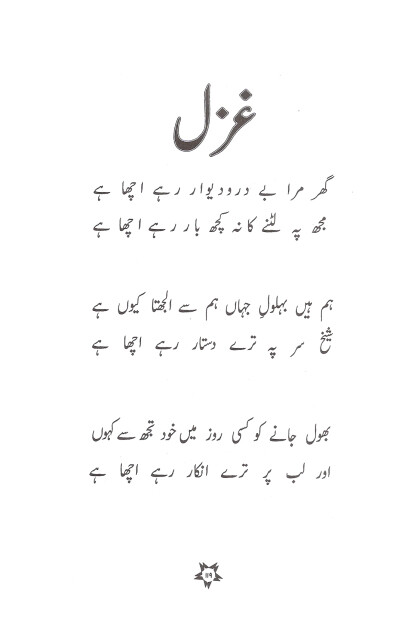 غزل
گھر مرا بے درودیوار رہے اچھا ہے
مجھ پہ لٹنے کا نہ کچھ بار رہے اچھا ہے
ہم ہیں بہلولِ جہاں ہم سے الجھتا کیوں ہے
شیخ سر پہ ترے دستار رہے اچھا ہے
بھول جانے کو کسی روز میں خود تجھ سے کہوں
اور لب پر ترے انکار رہے اچھا ہے
۱۱۹